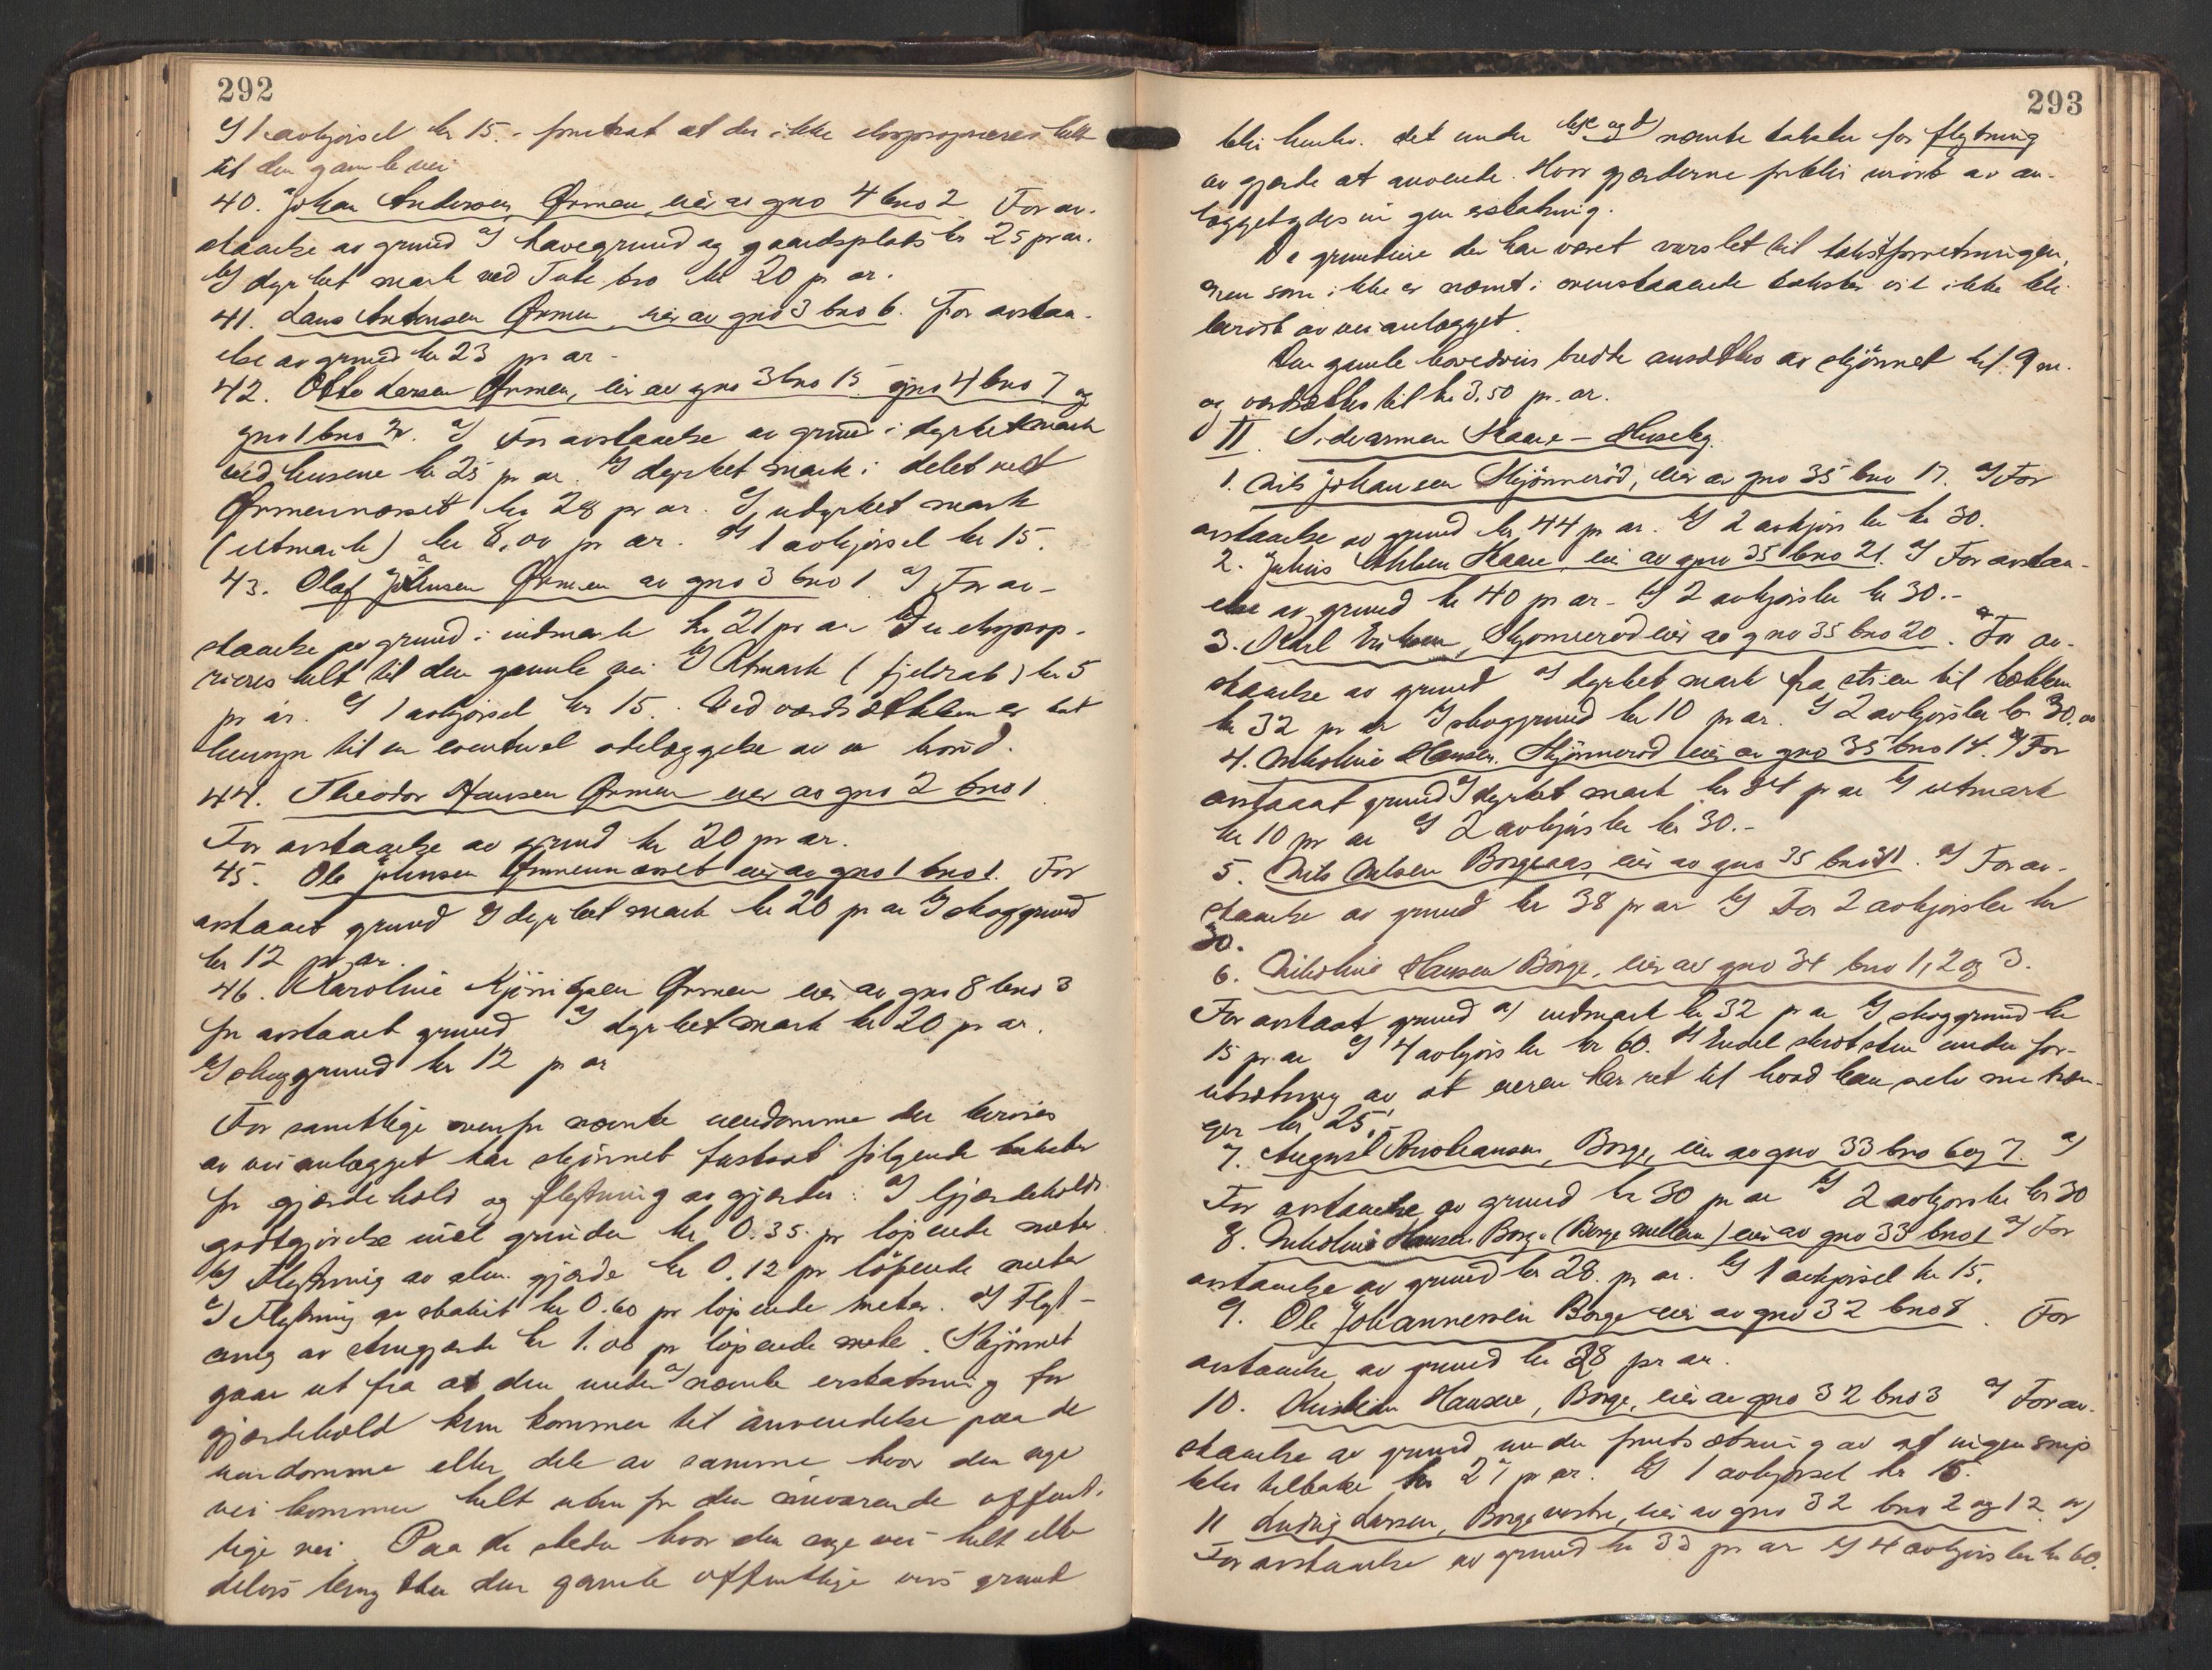 292
c) 1 avkjørsel kr 15.- forutsat at der ikke ekspropieres helt
til den gamle vei
40. Johan Andersen Ørmen, eier av gno 4 bno 2 For av-
staaelse av grund a) havegrund og gaardsplads kr 25 pr ar.
b) dyrket mark ved Tute bro kr 20 pr ar.
41. Laus Antonsen Ørmen, eier av gno 3 bno 6. For avstaa-
else av grund kr 23 pr ar -
42. Otto Larsen Ørmen, eier av gno 3 bno 15 gno 4 bno 7 og
gno 1 bno 2. a) For avstaaelse av grund i dyrket mark
ved husene kr 25 pr ar. b) dyrket mark i delet med
Ørmennæsset kr 28 pr ar. c) udyrket mark
(utmark) kr 8,00 pr ar. d) 1 avkjørsel kr 15.
43. Olaf Johansen Ørmen av gno 3 bno 1 a) For av-
staaelse av grund i indmark kr 21 pr ar Der ekspropi-
rieres helt til den gamle vei b) Utmark (fjeldrab) kr 5
pr ar. c) 1 avkjørsel kr 15. Ved værdsættelsen er tat
hensyn til en eventuel ødelæggelse av en brønd.
44. Theodor Hansen Ørmen eier av gno 2 bno 1
For avstaaelse av grund kr 20 pr ar.
45. Ole Johnsen Ørmennæsset eier av gno 1 bno 1. For
avstaaet grund a) dyrket mark kr 20 pr ar b) skoggrund
kr 12 pr ar.
46. Karoline Ørmen eier av gno 8 bno 3
for avstaaet grund a) dyrket mark kr 20 pr ar.
b) skoggrund kr 12 pr ar
For samtlige ovenfor nævnte eiendomme der berøres
av veianlægget har skjønnet fastsat følgende takster
for gjærdehold og flytning av gjærder: a) Gjærdeholds
godtgjørelse inkl grinder kr 0.35 pr løpende meter
b) Flytning av alm. gjærde kr 0.12 pr løpende meter
c) Flytning av stakit kr 0.60 pr løpende meter. d) Flyt-
ning av stengjærde kr 1.00 pr løpende meter. Skjønnet
gaar ut fra at den under a) nævnte erstatning for
gjærdehold kun kommer til anvendelse paa de
eiendomme eller dele av samme hvor den nye
vei kommer helt uten for den nuværende offent-
lige vei. Paa de steder hvor den nye vei helt eller
delvis beny tter den gamle offentlige veis grund
293
blir kun de under b, c og d) nævnte takster for flytning
av gjærde at anvende. Hvor gjærderne forblir urørt av an-
lægget ydes in gen erstatning.
De grundeiere der har været varslet til takstforretningen,
men som ikke er nævnt i ovenstaaende takster vil ikke bli
berørt av veianlægget.
Den gamle hovedveis bredde ansættes av skjønnet til 9 m.
og værdsættes til kr 3,50 pr. ar.
II. Sidearmen Kaare - Huseby.
1. Nils Johansen Skjønnerød, eier av gno 35 bno 17. a) For
avstaaelse av grund kr 44 pr ar. b) 2 avkjørsler kr 30.
2. Julius Kaare, eier av gno 35 bno 21. a) For avstaa-
else av grund kr 40 pr ar - b) 2 avkjørsler kr 30.-
3. Karl Eriksen, Skjønnerød eier av gno 35 bno 20. For av-
staaelse av grund a) dyrket mark fra stien til bækken
kr 32 pr ar b) skoggrund kr 10 pr ar. c) 2 avkjørsler kr 30.00
4. Nikoline Hansen, Skjønnerød eier av gno 35 bno 14. a) For
avstaaat grund dyrket mark kr 34 pr ar b) utmark
kr 10 pr ar c) 2 avkjørsler kr 30.-
5. Nils Nilsen Borgeaas, eier av gno 35 bno 31. a) For av-
staaelse av grund kr 38 pr ar b) For 2 avkjørsler kr
30.
6. Nikoline Hansen Borge, eier av gno 34 bno 1, 2 og 3.
For avstaat grund a) indmark kr 32 pr ar b) skoggrund kr
15 pr. ar c) 4 avkjørsler kr 60. d) Endel skrotsten under for-
utsætning av at eieren har ret til hvad han selv maa træn-
ger kr 25.-
7. August Borge, eier av gno 33 bno 6 og 7. a)
For avstaaelse av grund kr 30 pr ar b) 2 avkjørsler kr 30
8. Nikoline Hansen Borge (Borge mellem) eier av gno 33 bno 1 a) For
avstaaelse av grund kr 28. pr ar. b) 1 avkjørsel kr 15.
9. Ole Johannessen Borge eier av gno 32 bno 8. For
avstaaelse av grund kr 28 pr ar.
10. Kristian Hansen, Borge, eier av gno 32 bno 3 a) For av-
staaelse av grund under forutsætning av at ingen snip
blir tilbake kr 27 pr ar. b) 1 avkjørsel kr 15.
11 Ludvig Larsen, Borge vestre, eier av gno 32 bno 2 og 12 a)
For avstaaelse av grund kr 33 pr ar b) 4 avkjørsler kr 60.